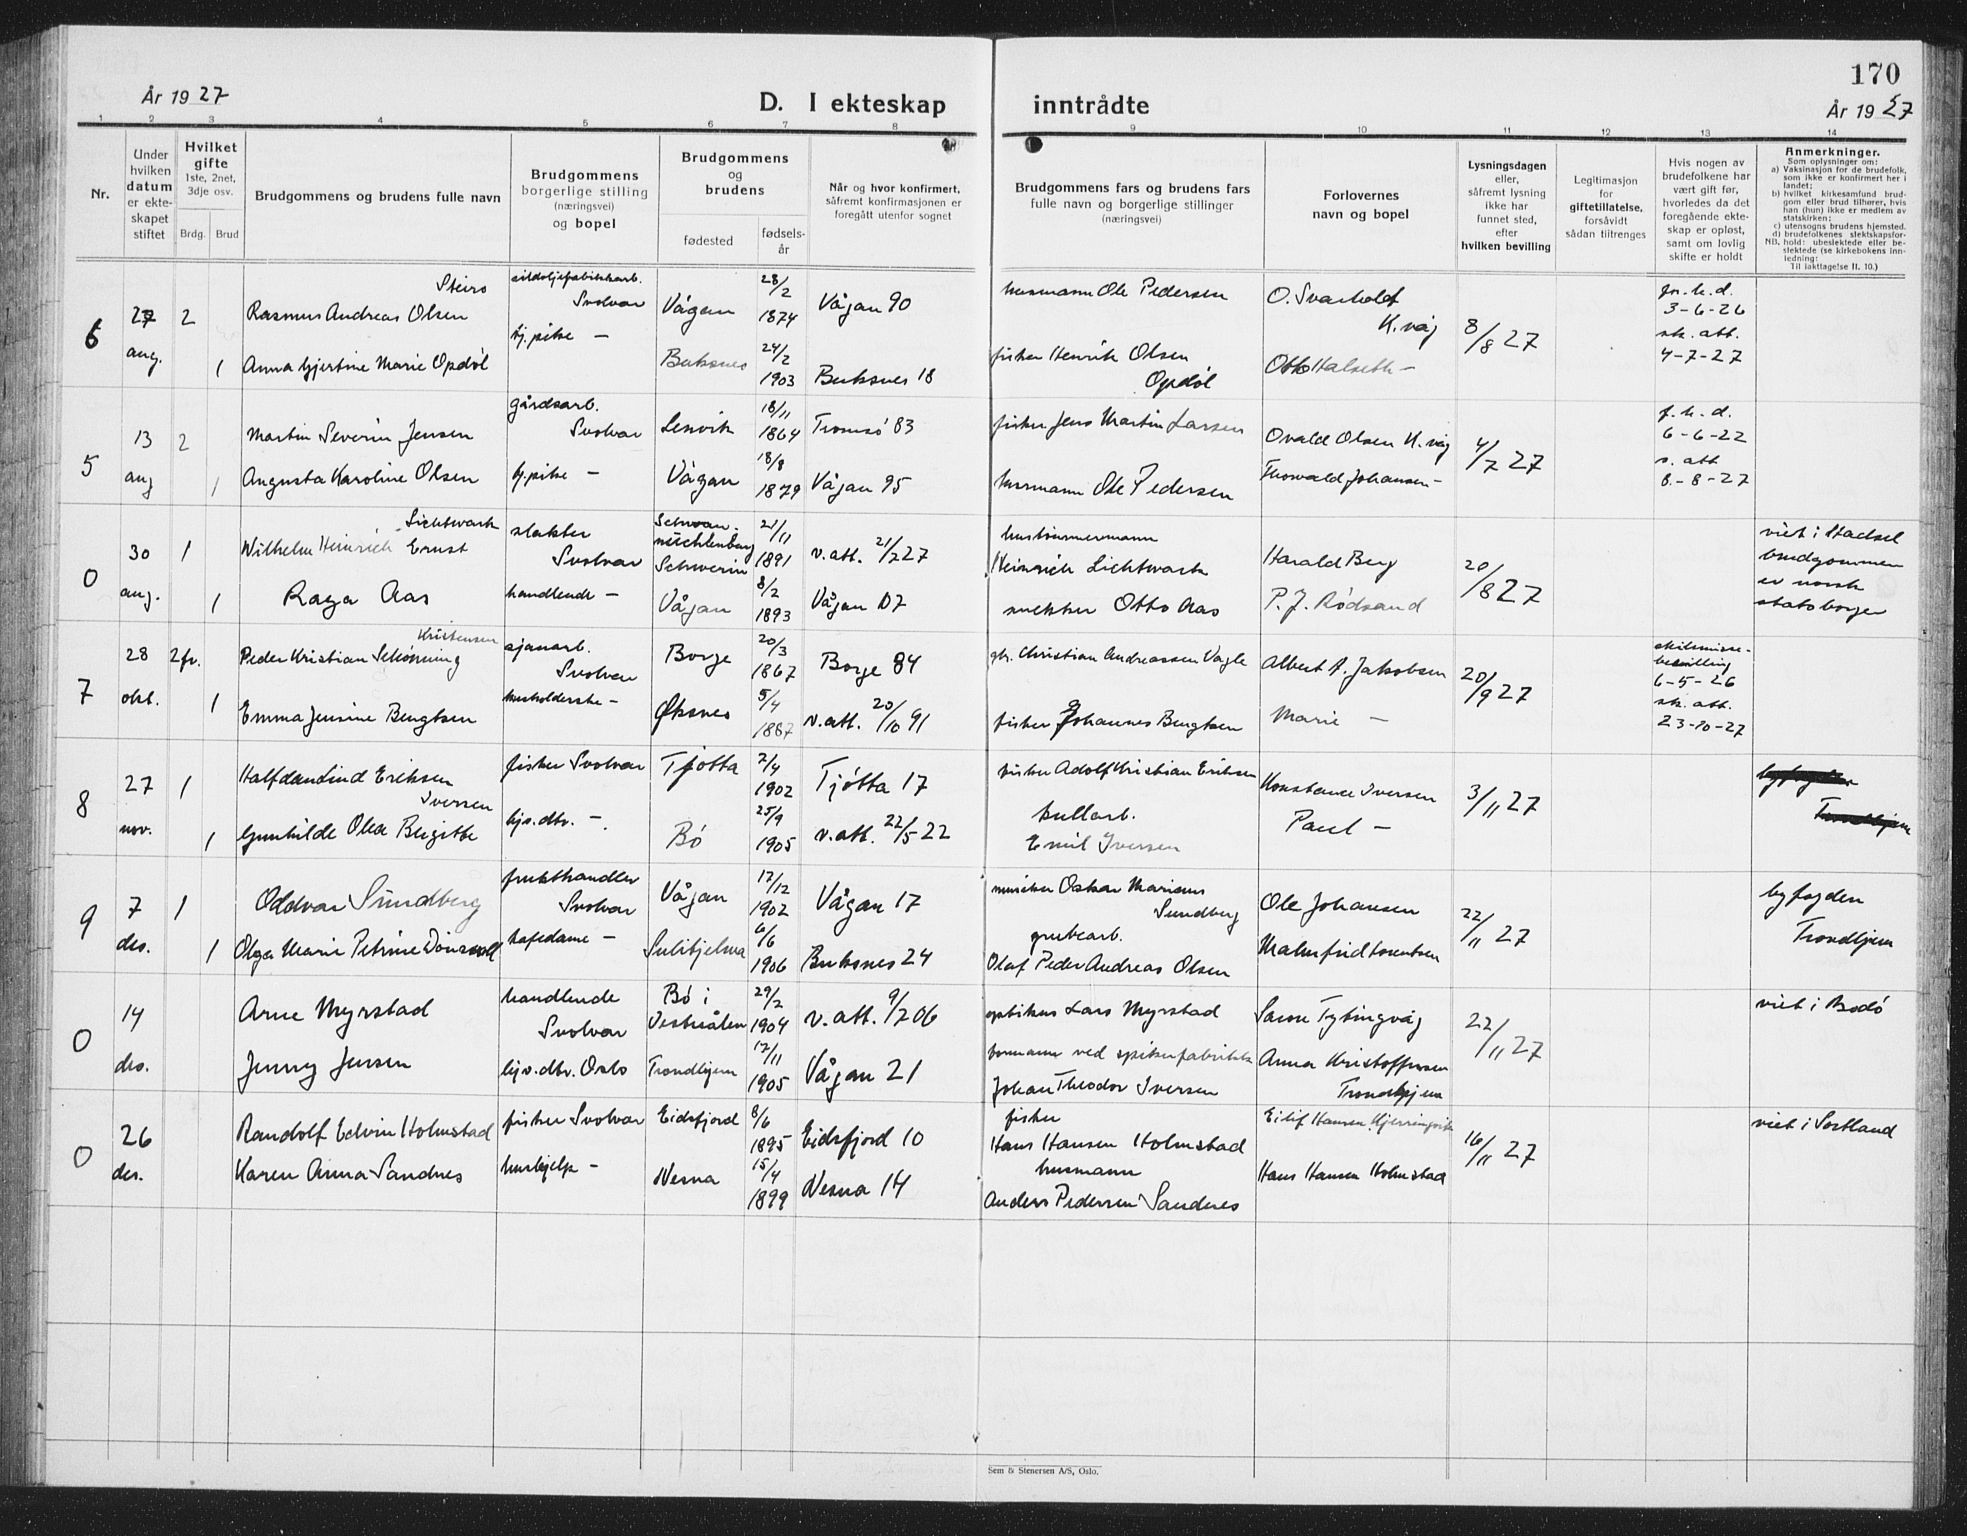 170
År 1927
D. I ekteskap inntrådte
År 1927
1 2 3 4 5 6 7 8 9 10 11 12 13 14
Nr.
Under hvilken datum er ekteskapet stiftet
Hvilket gifte 1ste, 2net, 3dje osv.
Brdg. Brud
Brudgommens og brudens fulle navn
Brudgommens borgerlige stilling (næringsvei) og bopel
Brudgommens og brudens
fødested
fødselsår
Når og hvor konfirmert, såfremt konfirmasjonen er foregått utenfor sognet
Brudgommens fars og brudens fars fulle navn og borgerlige stillinger (næringsvei)
Forlovernes navn og bopel
Lysningsdagen eller, såfremt lysning ikke har funnet sted, efter hvilken bevilling
Legitimasjon for giftetillatelse, forsåvidt sådan tiltrenges
Hvis nogen av brudefolkene har vært gift før, hvorledes da det foregående ekteskap er opløst, samt om lovlig skifte er holdt
Anmerkninger.
Som oplysninger om:
a) Vaksinasjon for de brudefolk, som ikke er konfirmert her i landet;
b) hvilket kirkesamfund brudgom eller brud tilhører, hvis han (hun) ikke er medlem av statskirken;
c) utensogns brudens hjemsted.
d) brudefolkenes slektskapsforhold: ubeslektede eller beslektede (se kirkebokens innledning:
NB.
Til iakttagelse II. 10.)
6 27 aug. 2 Rasmus Andreas Olsen Steiro
sildoljefabrikkarb. Svolvær Vågan 28/2 1874 Vågan 90
husmann Ole Pedersen
O. Svarholt K.våg 8/8 27
3-6-26
sk. att. 4-7-27
1 Anna Hjertine Marie Opdøl
hj. pike — Buksnes 24/2 1903 Buksnes 18
fisker Henrik Olsen Opdøl
Otto Halseth —
5 13 aug 2 Martin Severin Jensen
gårdsarb. Svolvær Lenvik 18/11 1864 Tromsö 83
fisker Jens Martin Larsen
Ovald Olsen K.våg 4/7 27
6-6-22
s. att 8-8-27
1 Augusta Karoline Olsen
hj. pike — Vågan 18/8 1879 Vågan 95
husmann Ole Pedersen
Thorvald Johansen —
0 30 aug. 1 Wilhelm Heinrich Ernst Lichtwark
slakter Svolvær Schwerin 21/11 1891 v. att. 21/7 27
hustømmermann Heinrich Lichtwark
Harald Berg 20/8 27
viet i Hadsel brudgommen er norsk statsborger
1 Raga Aas
handlende — Vågan 8/2 1893 Vågan 07
snekker Otto Aas
P. J. Rödsand
7 28 okt. 2 fr. Peder Kristian Schønning Kristensen
sjauarb. Svolvær Borge 20/3 1867 Borge 84
Christian Andreassen Vagle
Albert A. Jakobsen 20/9 27
skilsmisse-bevilling 6-5-26
sk. att. 23-10-27
1 Emma Jensine Bengtsen
husholderske — Øksnes 5/4 1887 v. att. 20/10 91
fisker Johannes Bengtsen
Marie —
8 27 nov. 1 Halfdan Lind Eriksen
fisker Svolvær Tjøtta 2/4 1902 Tjøtta 17
fisker Adolf Kristian Eriksen
Konstance Iversen 3/11 27
1 Gunhilde Olea Birgitte Iversen
hjv. dtr. — Bö 25/9 1905 v. att. 22/5 22
kullarb. Emil Iversen
Paul —
9 7 des. 1 Oddvar Sundberg
frukthandler Svolvær Vågan 17/12 1902 Vågan 17
musiker Oskar Marius Sundberg
Ole Johansen 22/11 27
byfogden Trondhjem
1 Olga Marie Petrine
kafedame — Sulitjelma 6/6 1906 Buksnes 24
grubearb. Olaf Peder Andreas Olsen
Malmfrid Lorentsen
0 14 des. Arne Myrstad
handlende Svolvær Bö i Vesterålen 29/2 1904 v. att. 9/7 06
optikus Lars Myrstad
22/11 27
viet i Bodö
Jenny Jensen
hjv. dtr. Oslo Trondhjem 17/11 1905 Vågan 21
formann ved spikerfabrikk Johan Theodor Iversen
Anna Kristoffersen Trondhjem
0 26 des. Randolf Edvin Holmstad
fisker Svolvær Eidsfjord 8/6 1895 Eidsfjord 10
fisker Hans Hansen Holmstad
Eilif Hansen, Kjerringvik 16/11 27
viet i Sortland
Karen Anna Sandnes
hushjelp — Nesna 15/4 1899 Nesna 14
husmann Anders Pedersen Sandnes
Hans Hansen Holmstad
Sem & Stenersen A/S, Oslo.